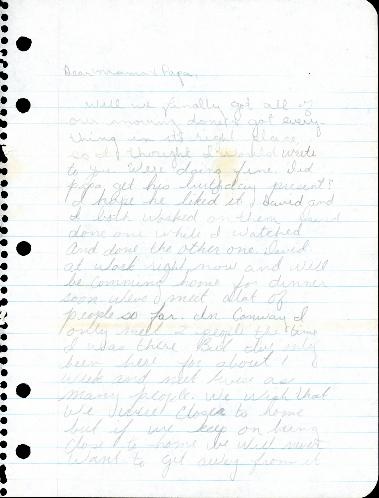 Dear Mama & Papa,
Well we finally got all of
our moving done & got every-
thing in its right place
so I thought I would write
to you. Were doing fine. Did
papa get his birthday present?
I hope he liked it, David and
I both worked on them. David
done one while I watched
And done the other one. David
at work right now and will
be comming home for dinner
soon. Weve meet alot of
people so far. In Conway I
only meet 2 people the time
I was there But Ive only
been here for about 1
week and met twice as
many people. We wish that
we were closer to home
but if we keep on being
close to home we will never
want to get away from it